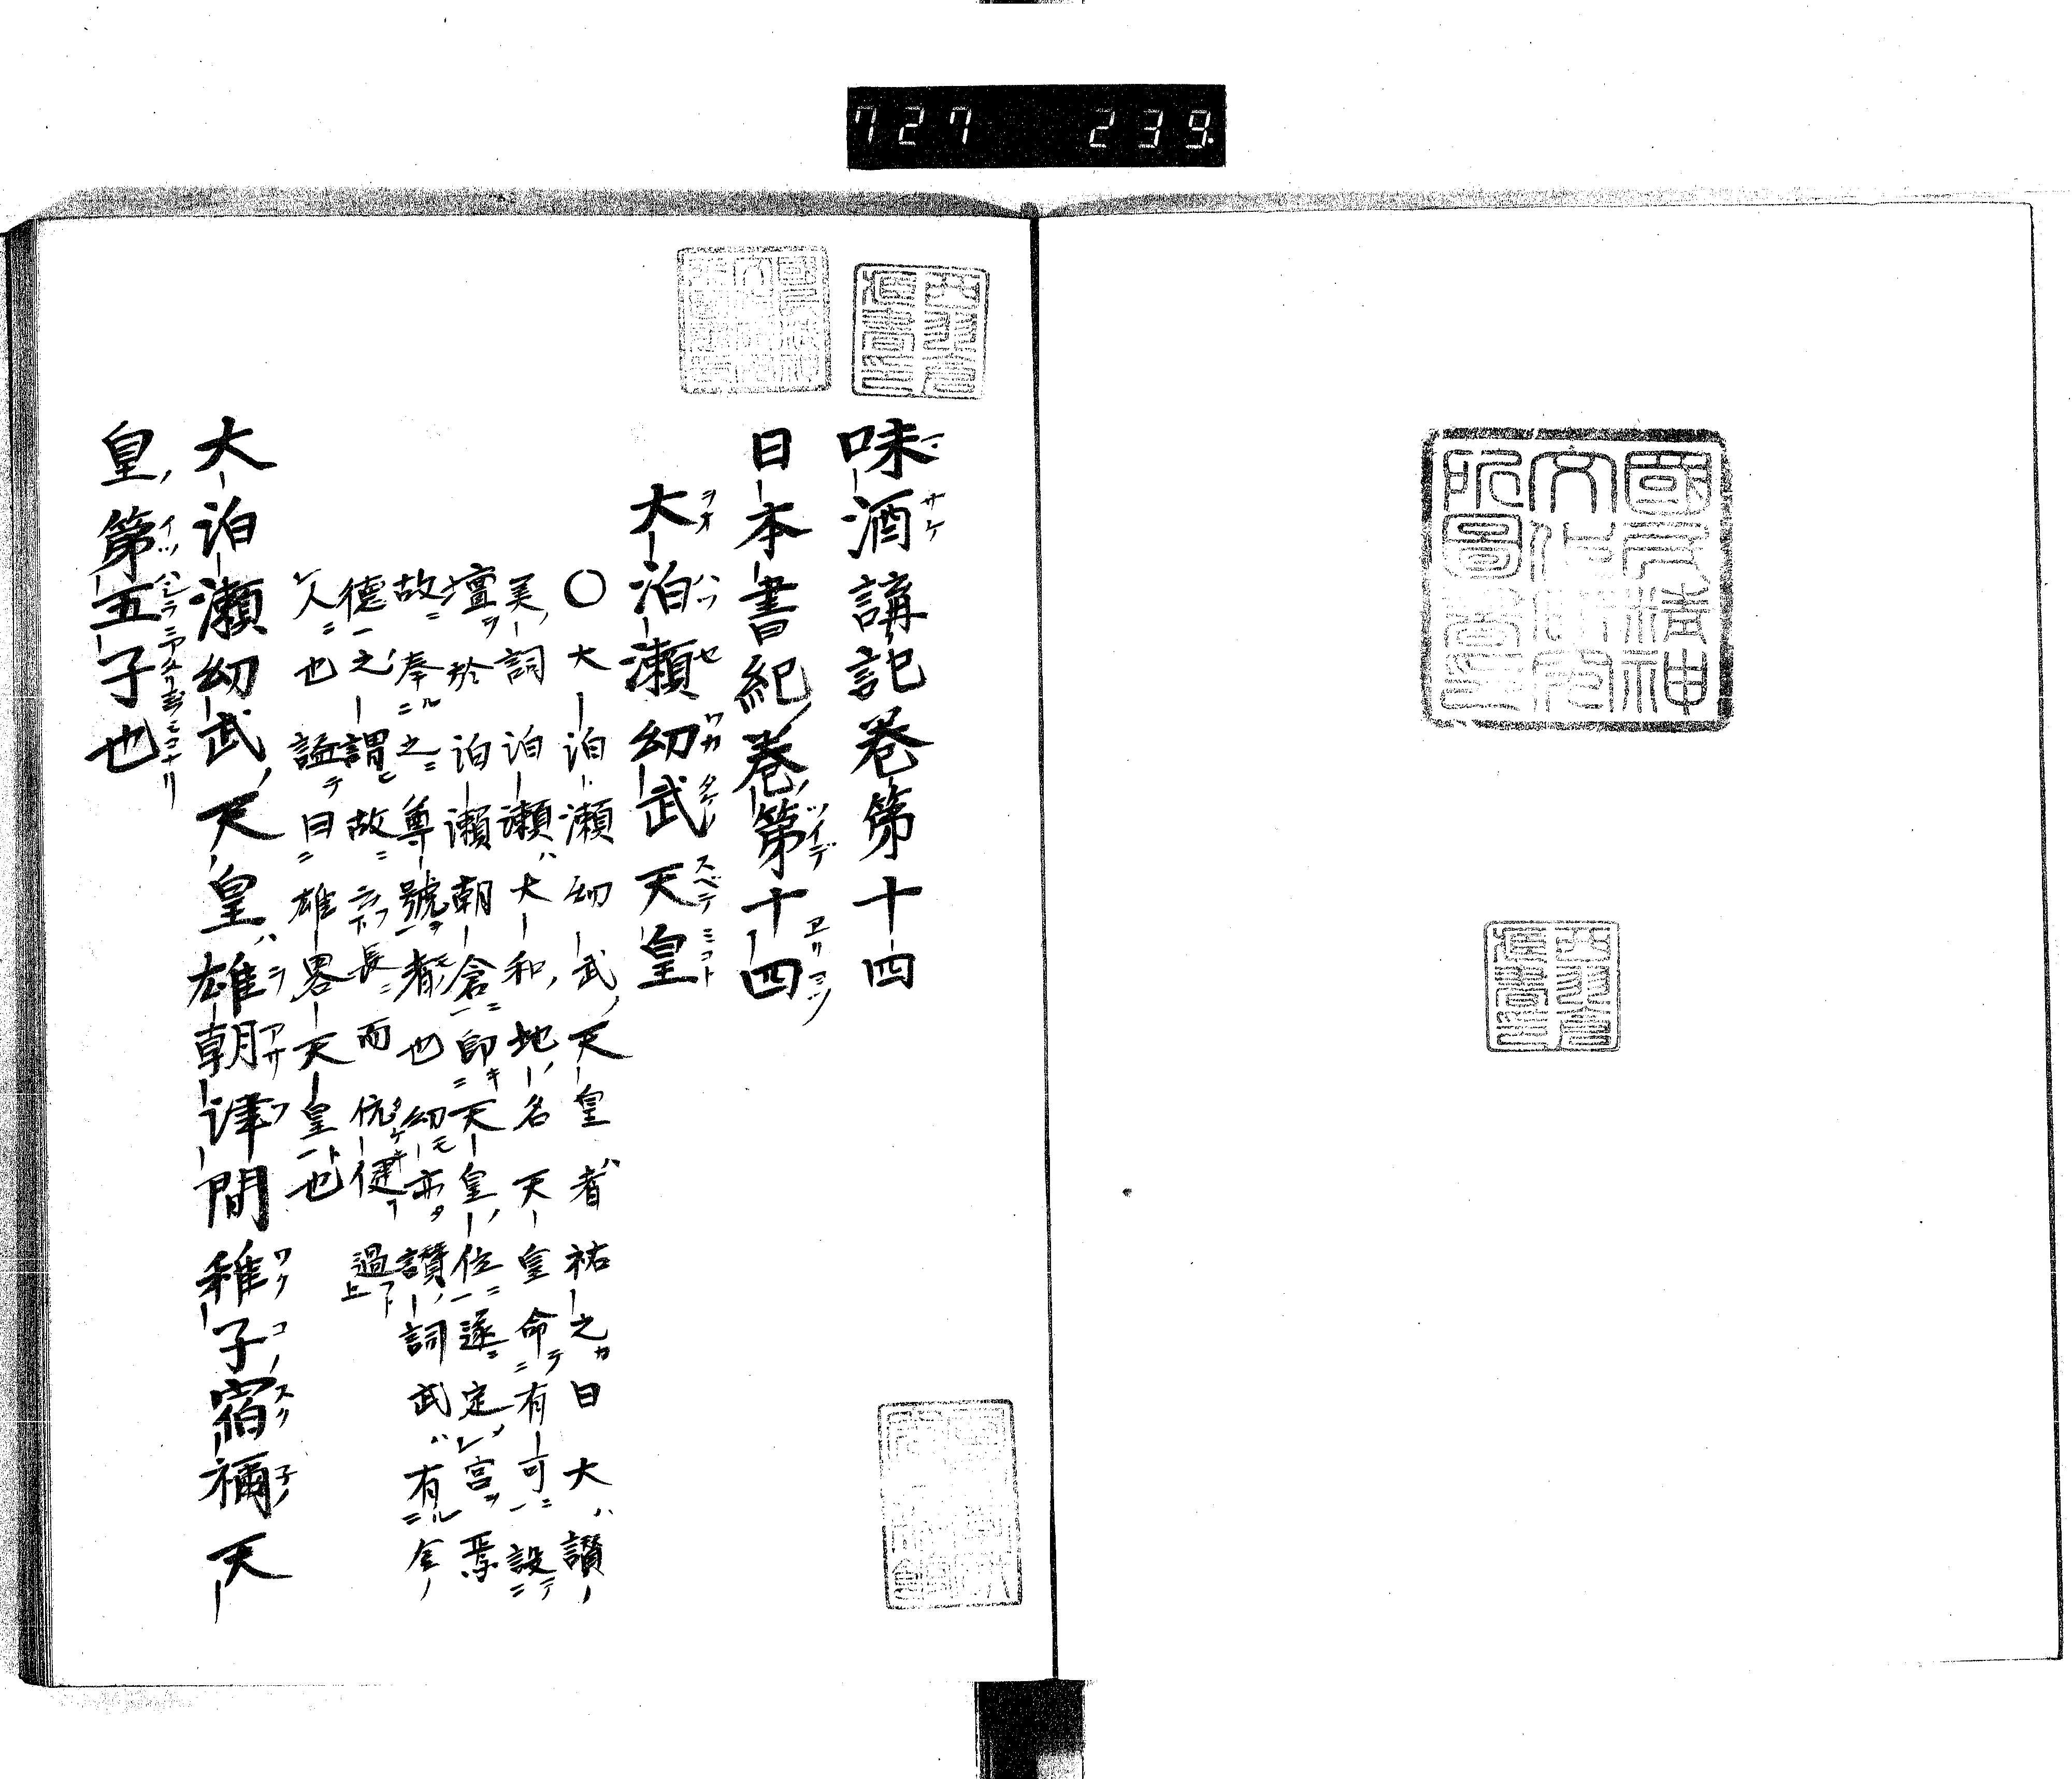 727 239.
國民精神文化研究所圖書之印
味酒講記巻第十四
日本書紀巻第十四
大泊瀬幼武天皇
○大泊瀬幼武天皇者祐之曰大讃
美詞泊瀬大和地名天皇命有可設
壇於泊瀬朝倉即天皇位遂定宮焉
故奉之尊號者也幼亦讃詞武有全
德之謂故云長而伉健過
人也謚曰雄畧天皇也
大泊瀬幼武天皇雄朝津間稚子宿禰天
皇第五子也